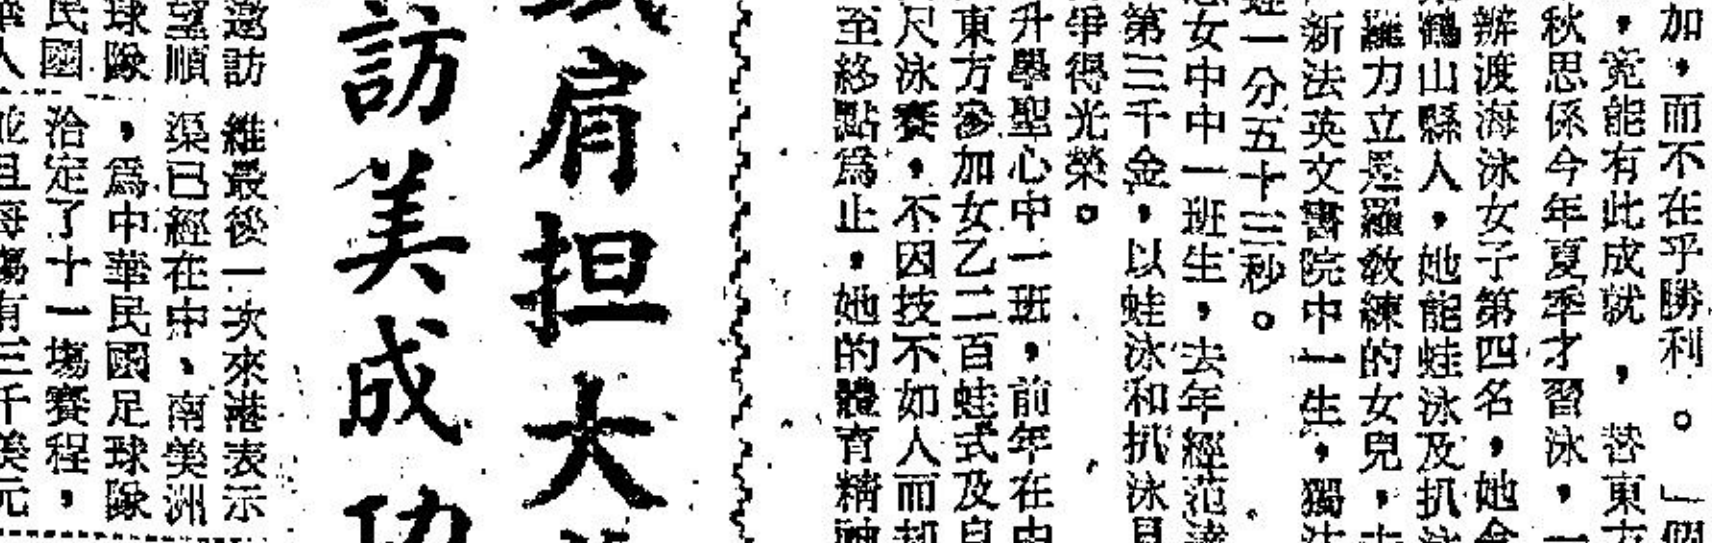 加，而不在乎勝利。」個
，竟能有此成就，替東方
秋思係今年夏季才習泳，一
辦渡海泳女子第四名，她會
鶴山縣人，她能蛙泳及扒泳
羅力立是羅敎練的女兒，
新法英文書院中一生，獨
一分五十三秒。
女中中一班生，去年經范
第三千金，以蛙泳和扒泳見
爭得光榮。
升學聖心中一班，前年在中
東方參加女乙二百蛙式及自
尺泳賽，不因技不如人而却
至終點爲止，她的體育精神
肩担大
訪美成功
邀訪
望順
球隊
民國
維最後一次來港表示
渠已經在中、南美洲
，爲中華民國足球隊
洽定了十一塲賽程，
並且每塲有三千美元